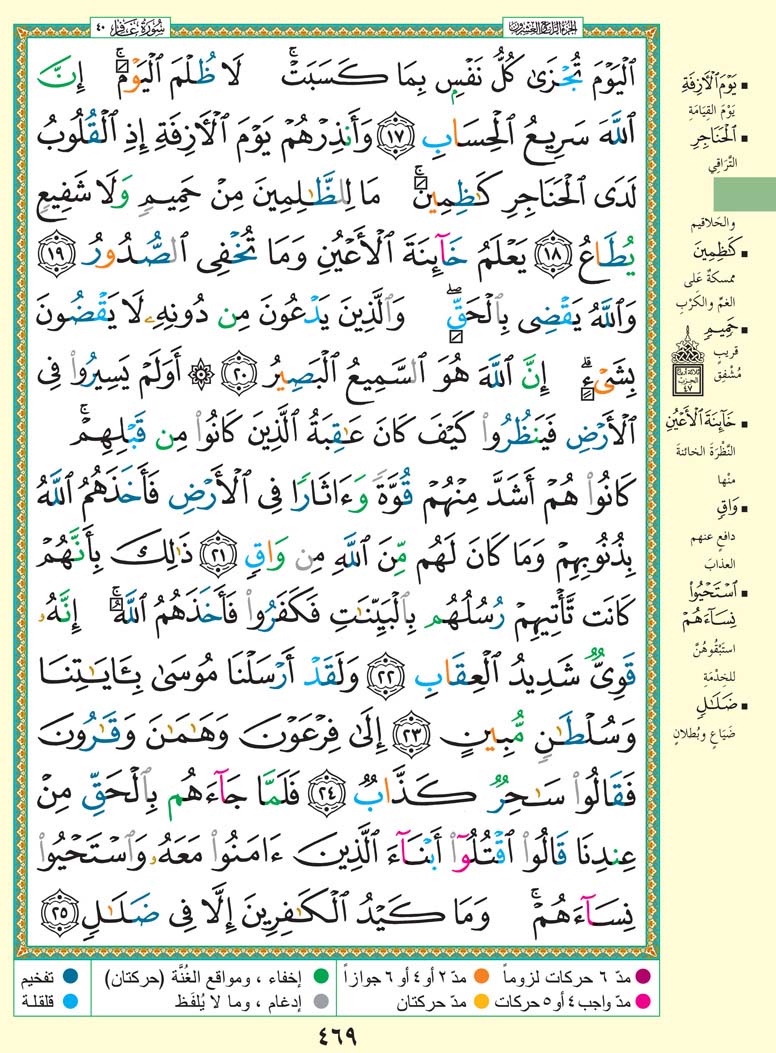 سُورَةُ غَافِر ٤٠
الجزء الرابع والعشرون
ٱلْيَوْمَ تُجْزَىٰ كُلُّ نَفْسٍۭ بِمَا كَسَبَتْ ۚ لَا ظُلْمَ ٱلْيَوْمَ ۚ إِنَّ
ٱللَّهَ سَرِيعُ ٱلْحِسَابِ ﴿١٧﴾ وَأَنذِرْهُمْ يَوْمَ ٱلْءَازِفَةِ إِذِ ٱلْقُلُوبُ
لَدَى ٱلْحَنَاجِرِ كَٰظِمِينَ ۚ مَا لِلظَّٰلِمِينَ مِنْ حَمِيمٍ وَلَا شَفِيعٍ
يُطَاعُ ﴿١٨﴾ يَعْلَمُ خَآئِنَةَ ٱلْأَعْيُنِ وَمَا تُخْفِى ٱلصُّدُورُ ﴿١٩﴾
وَٱللَّهُ يَقْضِى بِٱلْحَقِّ ۖ وَٱلَّذِينَ يَدْعُونَ مِن دُونِهِۦ لَا يَقْضُونَ
بِشَىْءٍ ۗ إِنَّ ٱللَّهَ هُوَ ٱلسَّمِيعُ ٱلْبَصِيرُ ﴿٢٠﴾ ۞ أَوَلَمْ يَسِيرُوا۟ فِى
ٱلْأَرْضِ فَيَنظُرُوا۟ كَيْفَ كَانَ عَٰقِبَةُ ٱلَّذِينَ كَانُوا۟ مِن قَبْلِهِمْ ۚ
كَانُوا۟ هُمْ أَشَدَّ مِنْهُمْ قُوَّةً وَءَاثَارًا فِى ٱلْأَرْضِ فَأَخَذَهُمُ ٱللَّهُ
بِذُنُوبِهِمْ وَمَا كَانَ لَهُم مِّنَ ٱللَّهِ مِن وَاقٍ ﴿٢١﴾ ذَٰلِكَ بِأَنَّهُمْ
كَانَت تَّأْتِيهِمْ رُسُلُهُم بِٱلْبَيِّنَٰتِ فَكَفَرُوا۟ فَأَخَذَهُمُ ٱللَّهُ ۚ إِنَّهُۥ
قَوِىٌّ شَدِيدُ ٱلْعِقَابِ ﴿٢٢﴾ وَلَقَدْ أَرْسَلْنَا مُوسَىٰ بِـَٔايَٰتِنَا
وَسُلْطَٰنٍ مُّبِينٍ ﴿٢٣﴾ إِلَىٰ فِرْعَوْنَ وَهَٰمَٰنَ وَقَٰرُونَ
فَقَالُوا۟ سَٰحِرٌ كَذَّابٌ ﴿٢٤﴾ فَلَمَّا جَآءَهُم بِٱلْحَقِّ مِنْ
عِندِنَا قَالُوا۟ ٱقْتُلُوٓا۟ أَبْنَآءَ ٱلَّذِينَ ءَامَنُوا۟ مَعَهُۥ وَٱسْتَحْيُوا۟
نِسَآءَهُمْ ۚ وَمَا كَيْدُ ٱلْكَٰفِرِينَ إِلَّا فِى ضَلَٰلٍ ﴿٢٥﴾
▪ يَوْمَ ٱلْءَازِفَةِ
يَوْمَ القِيَامَةِ
▪ ٱلْحَنَاجِرِ
التَّرَاقِي
والحَلاقيم
▪ كَٰظِمِينَ
ممسكةً عَلى
الغمّ والكَرْبِ
▪ حَمِيمٍ
قريب
مُشْفِق
ثلاثة أرباع الحزب ٤٧
▪ خَآئِنَةَ ٱلْأَعْيُنِ
النَّظْرَةَ الخائنةَ
منْها
▪ وَاقٍ
دافع عنهم
العذابَ
▪ ٱسْتَحْيُوا۟
نِسَآءَهُمْ
استَبْقُوهُنَّ
للخِدْمَةِ
▪ ضَلَٰلٍ
ضَيَاعٍ وبُطلانٍ
مدّ ٦ حركات لزوماً
مدّ ٢ أو ٤ أو ٦ جوازاً
إخفاء ، ومواقع الغُنَّة (حركتان)
تفخيم
مدّ واجب ٤ أو ٥ حركات
مدّ حركتان
إدغام ، وما لا يُلفَظ
قلقلة
٤٦٩